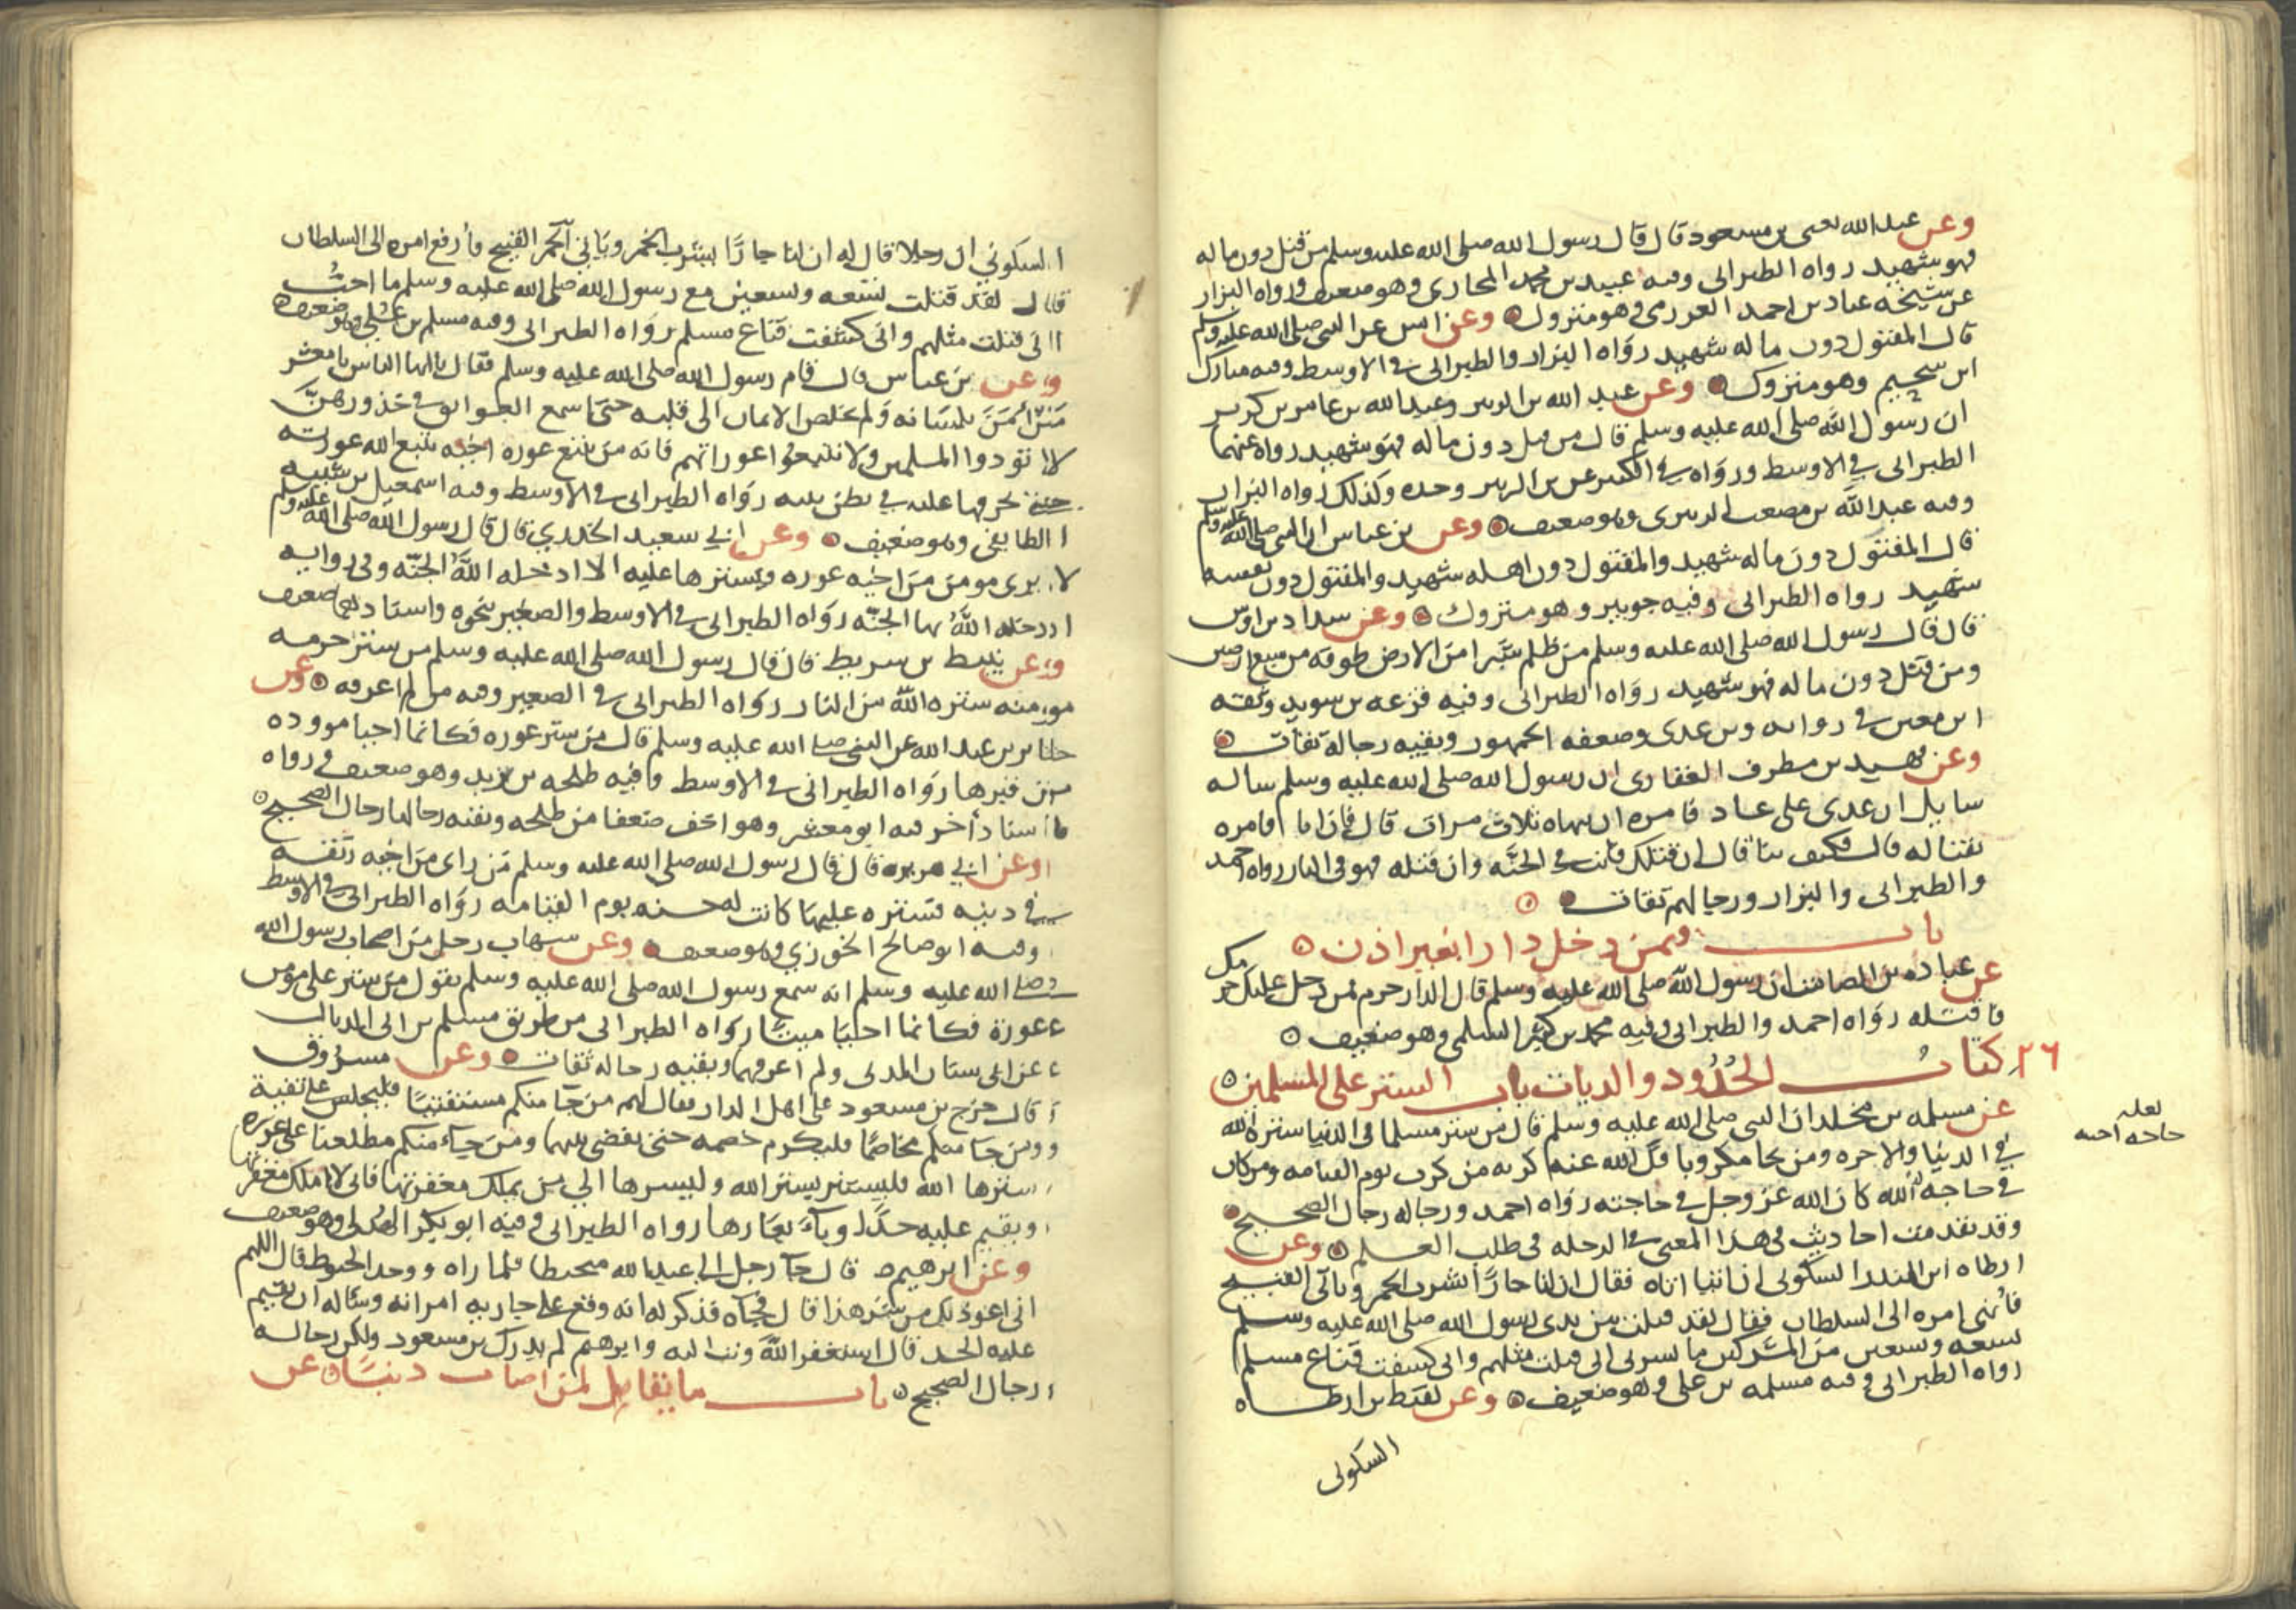 وعن عبد الله يعني بن مسعود قال قال رسول الله صلى الله عليه وسلم من قتل دون ماله
فهو شهيد رواه الطبراني وفيه عبيد بن محمد المحاربي وهو ضعيف ورواه البزار
عن شيخه عباد بن احمد العرزمي وهو متروك وعن انس عن النبي صلى الله عليه وسلم
قال المقتول دون ماله شهيد رواه البزار والطبراني في الاوسط وفيه مبارك
ابن سحيم وهو متروك وعن عبد الله بن الزبير وعبد الله بن عامر بن كريز
ان رسول الله صلى الله عليه وسلم قال من قتل دون ماله فهو شهيد رواه عنهما
الطبراني في الاوسط ورواه في الكبير عن بن الزبير وحده وكذلك رواه البزار
وفيه عبد الله بن مصعب الزبيري وهو ضعيف وعن بن عباس ان النبي صلى الله عليه وسلم
قال المقتول دون ماله شهيد والمقتول دون اهله شهيد والمقتول دون نفسه
شهيد رواه الطبراني وفيه جويبر وهو متروك وعن شداد بن اوس
قال قال رسول الله صلى الله عليه وسلم من ظلم شبرا من الارض طوقه من سبع ارضين
ومن قتل دون ماله فهو شهيد رواه الطبراني وفيه قزعه بن سويد وثقه
ابن معين في روايه وبن عدي وضعفه الجمهور وبقيه رجاله ثقات
وعن فهيد بن مطرف الغفاري ان رسول الله صلى الله عليه وسلم ساله
سايل ان عدى على عاد فامره ان ينهاه ثلاث مرات قال فان ابا فامره
بقتاله قال فكيف بنا قال ان قتلك فانت في الجنه وان قتله فهو في النار رواه احمد
والطبراني والبزار ورجالهم ثقات
باب فيمن دخل دارا بغير اذن
عن عباده بن الصامت ان رسول الله صلى الله عليه وسلم قال الدار حرم فمن دخل عليك حرمك
فاقتله رواه احمد والطبراني وفيه محمد بن كثير السلمي وهو ضعيف
٢٦ كتاب الحدود والديات باب الستر على المسلمين
عن مسلمه بن مخلد ان النبي صلى الله عليه وسلم قال من ستر مسلما في الدنيا ستره الله
في الدنيا والاخره ومن نجا مكروبا فك الله عنه كربه من كرب يوم القيامه ومن كان
في حاجه الله كان الله عز وجل في حاجته رواه احمد ورجاله رجال الصحيح
لعله
حاجه اخيه
وقد تقدمت احاديث في هذا المعنى في الرحله في طلب العلم وعن
ارطاه ابن المنذر السكوني ان اتيا اتاه فقال ان لنا جارا يشرب الخمر وياتي القبيح
فانهي امره الى السلطان فقال لقد قتلت بين يدي رسول الله صلى الله عليه وسلم
تسعه وتسعين من المشركين ما يسرني اني قتلت مثلهم واني كشفت قناع مسلم
رواه الطبراني وفيه مسلمه بن علي وهو ضعيف وعن لقيط بن ارطاه
السكوني
السكوني ان رجلا قال له ان لنا جارا يشرب الخمر وياتي القبيح فارفع امره الى السلطان
قال لقد قتلت تسعه وتسعين مع رسول الله صلى الله عليه وسلم ما احب
اني قتلت مثلهم واني كشفت قناع مسلم رواه الطبراني وفيه مسلم بن علي وهو ضعيف
وعن بن عباس قال قام رسول الله صلى الله عليه وسلم فقال يا ايها الناس يا معشر
من امن بلسانه ولم يخلص الايمان الى قلبه حتى اسمع العواتق في خدورهن
لا توذوا المسلمين ولا تتبعوا عوراتهم فانه من يتبع عوره اخيه يتبع الله عورته
حتى يخرقها عليه في بطن بيته رواه الطبراني في الاوسط وفيه اسمعيل بن شيبه
الطايفي وهو ضعيف وعن ابي سعيد الخدري قال قال رسول الله صلى الله عليه وسلم
لا يرى مومن من اخيه عوره ويسترها عليه الا ادخله الله الجنه وفي روايه
ادخله الله بها الجنه رواه الطبراني في الاوسط والصغير بنحوه واسنادهما ضعيف
وعن نبيط بن شريط قال قال رسول الله صلى الله عليه وسلم من ستر حرمه
مومنه ستره الله من النار رواه الطبراني في الصغير وفيه من لم اعرفه وعن
جابر بن عبد الله عن النبي صلى الله عليه وسلم قال من ستر عوره فكانما احيا مووده
من قبرها رواه الطبراني في الاوسط وفيه طلحه بن يزيد وهو ضعيف ورواه
باسناد اخر فيه ابو معشر وهو اخف ضعفا من طلحه وبقيه رجالها رجال الصحيح
وعن ابي هريره قال قال رسول الله صلى الله عليه وسلم من راى من اخيه رتقه
في دينه فستره عليها كانت له حسنه يوم القيامه رواه الطبراني في الاوسط
وفيه ابو صالح الخوزي وهو ضعيف وعن شهاب رجل من اصحاب رسول الله
صلى الله عليه وسلم انه سمع رسول الله صلى الله عليه وسلم يقول من ستر على مومن
عورة فكانما احيا ميتا رواه الطبراني من طريق مسلم بن ابي الذيال
عن ابي سنان المدني ولم اعرفهما وبقيه رجاله ثقات وعن مسروق
قال خرج بن مسعود على اهل الدار فقال لهم من جا منكم مستفتيا فليجلس على نفتيه
ومن جا منكم مخاصما فليكرم خصمه حتى نقضي بينهما ومن جاء منكم مطلعنا على عوره
سترها الله فليستتر بستر الله وليسرها الى من يملك مغفرتها فاني لا املك مغفرتها
ونقيم عليه حدا ويبا بعارها رواه الطبراني وفيه ابو بكر الهذلي وهو ضعيف
وعن ابرهيم قال جا رجل الى عبد الله متحنطا فلما راه ووجد الحنوط قال اللهم
اني اعوذ بك من شر هذا قال فجاه فذكر له انه وقع على جاريه امراته وساله ان يقيم
عليه الحد قال استغفر الله وتب اليه وابرهيم لم يدرك بن مسعود ولكن رجاله
رجال الصحيح باب ما يقال لمن اصاب ذنبا عن